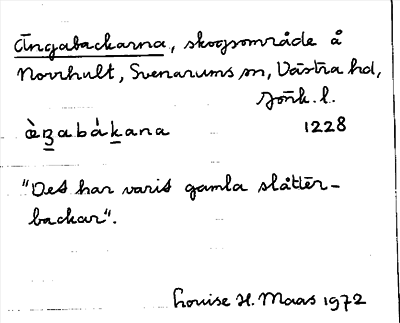 Ängabackarna, skogsområde å
Norrhult, Svenarums sn, Västra hd,
Jönk. l.
1228
"Det har varit gamla slåtter-
backar".
Louise H. Maas 1972